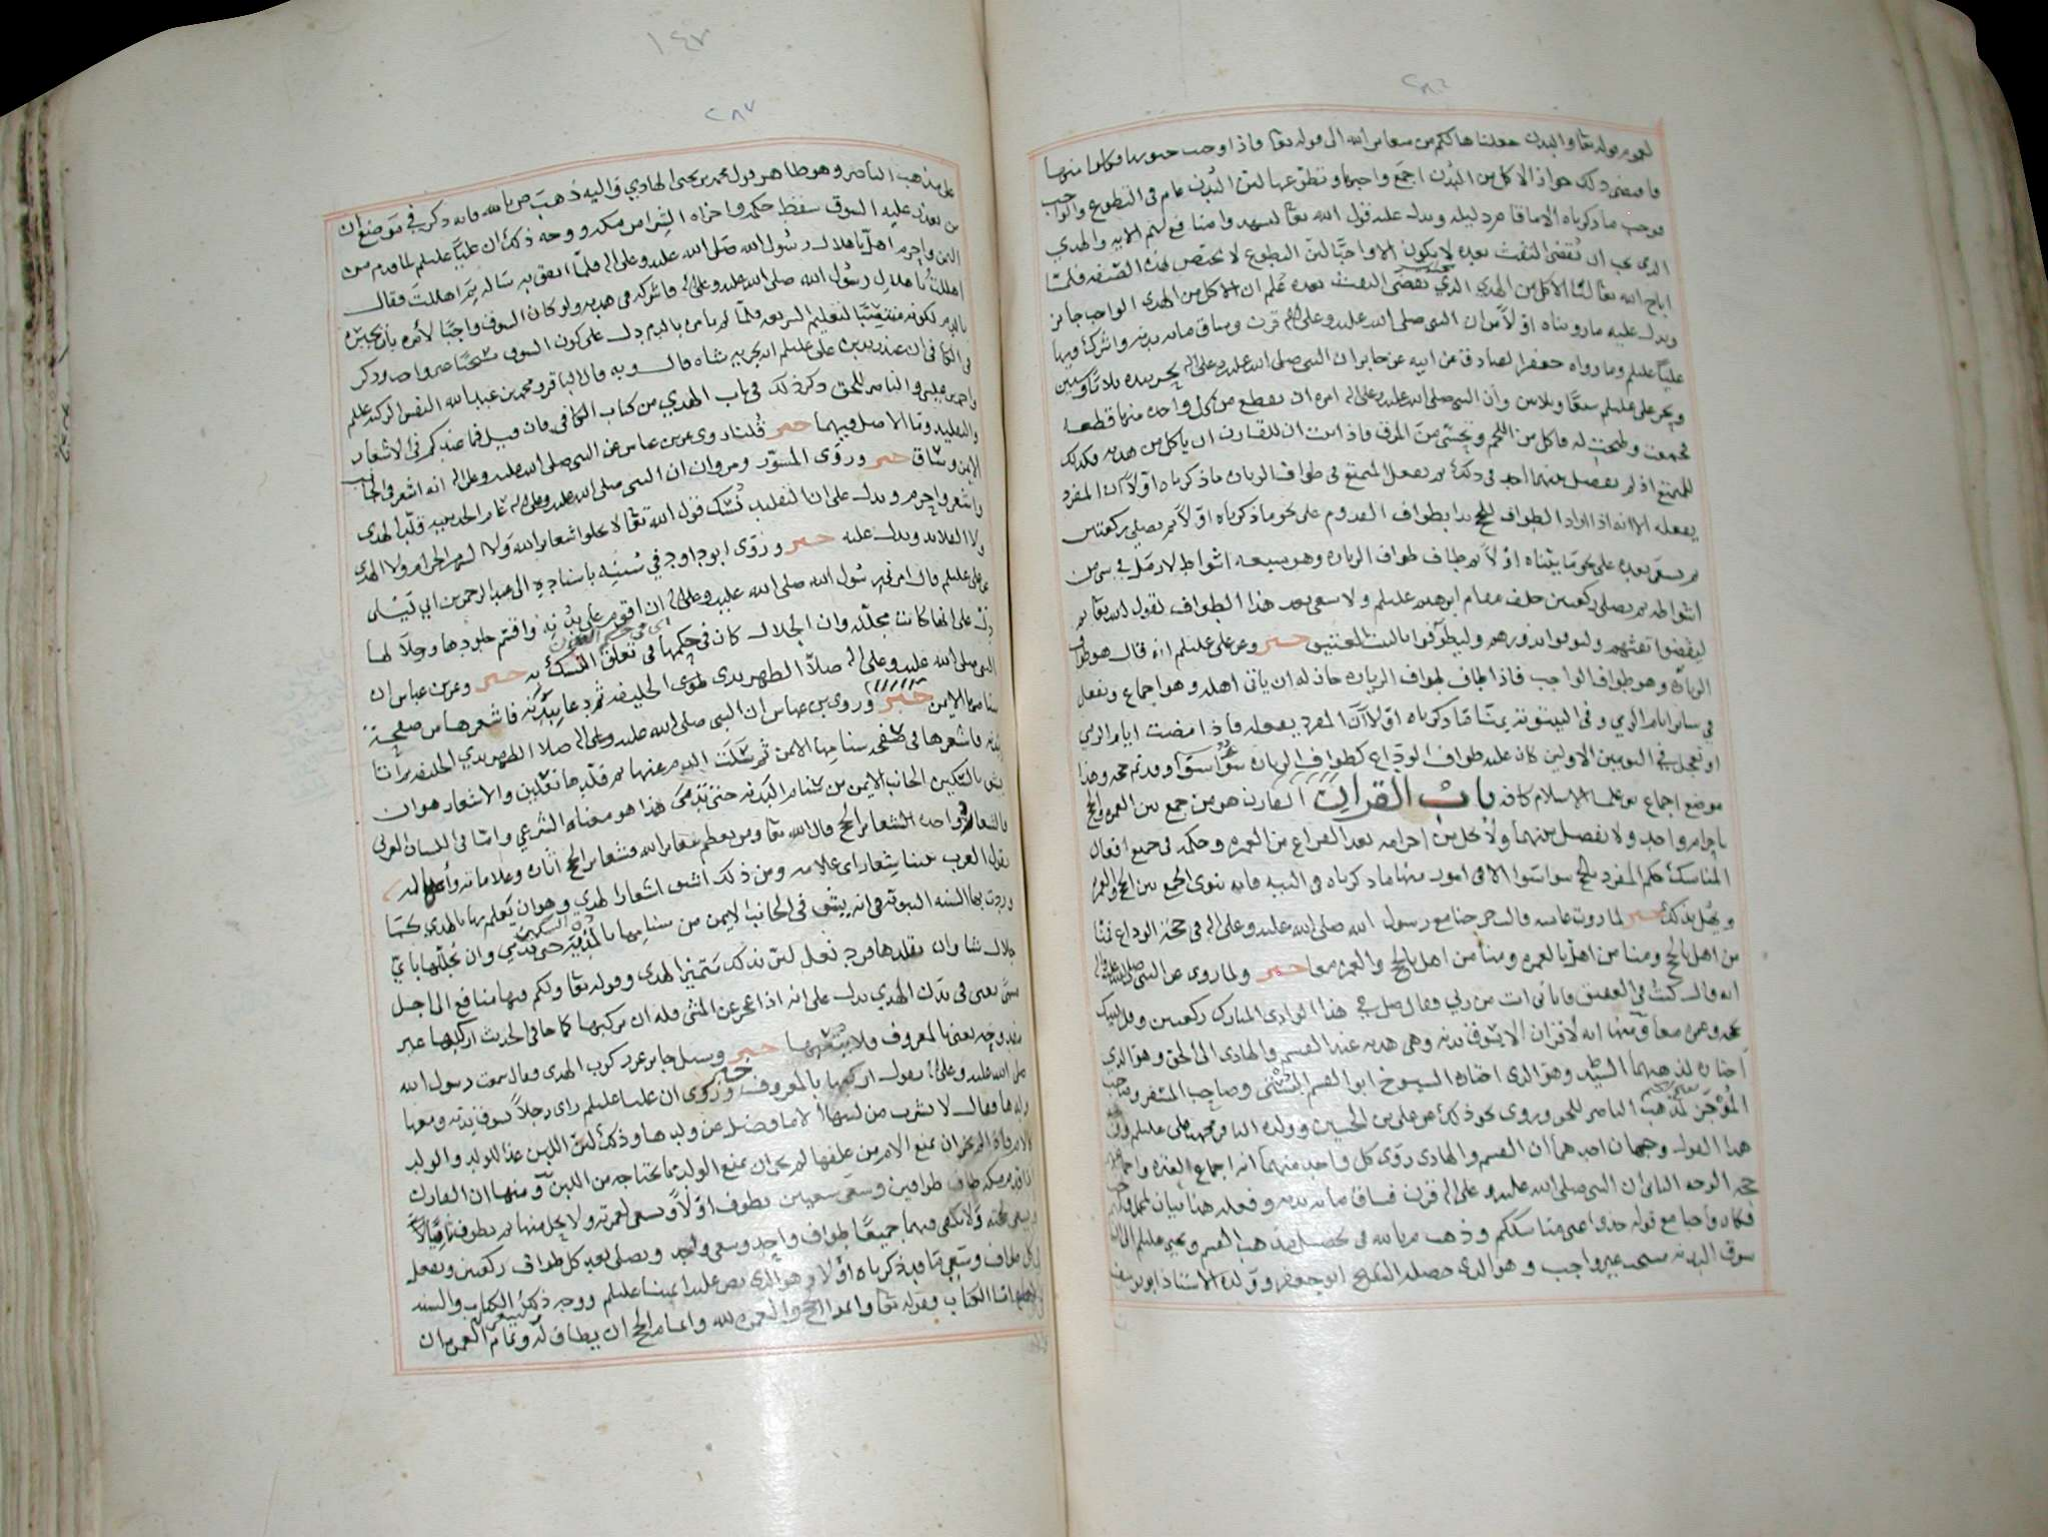 ٢٨٦
لعموم قوله تعا والبدن جعلناها لكم من شعائر الله الى قوله تعا فاذا وجبت جنوبها فكلوا منها
فاقتضى ذلك جواز الاكل من البدن اجمع واجبها وتطوعها لان البدن عام في التطوع والواجب
فوجب ما ذكرناه الا ما قام دليله ويدل عليه قول الله تعا ليشهدوا منافع لهم الايه والهدي
الذي يجب ان يقضى التفث بعده لا يكون الا واجبا لان التطوع لا يختص بهذه الصفه فلما
اباح الله تعا لنا الاكل من الهدي الذي يقضى التفث بعده علم ان الاكل من الهدي الواجب جائز
ويدل عليه ما رويناه اولا من ان النبى صلى الله عليه وعلى اله قرن وساق مائه بدنه واشرك فيها
عليا عليلم وما رواه جعفر الصادق عن ابيه عن جابر ان النبى صلى الله عليه وعلى اله نحر بيده ثلاثا وستين
ونحر على عليلم سبعا وثلاثين وأن النبى صلى الله عليه وعلى اله امر ان يقطع من كل واحده منها قطعه
فجمعت وطبخت له فاكل من اللحم وتحسى من المرق فاذا ثبت ان للقارن ان ياكل من هديه فكذلك
المتمتع اذ لم يفصل بينهما احد في ذلك ثم يفعل المتمتع في طواف الزياره ما ذكرناه اولا ان المفرد
يفعله الا انه اذا اراد الطواف للحج بدا بطواف القدوم على نحو ما ذكرناه اولا ثم يصلى ركعتين
ثم يسعى بعده على نحو ما بيناه اولا ثم طاف طواف الزياره وهو سبعه اشواط لا رمل في شى من
اشواطه ثم يصلى ركعتين خلف مقام ابرهيم عليلم ولا سعى بعد هذا الطواف لقول الله تعا ثم
ليقضوا تفثهم وليوفوا نذورهم وليطوفوا بالبيت العتيق خبر وعن على عليلم انه قال هو طواف
الزياره وهو طواف الواجب فاذا طاف طواف الزياره جاز له ان ياتى اهله وهو اجماع ويفعل
في سائر ايام الرمي وفى البيتوته بمنا ما ذكرناه اولا أن المفرد يفعله فاذا مضت ايام الرمي
او تعجل في اليومين الاولين كان عليه طواف الوداع كطواف الزياره سواسوا وقد تم حجه وهذا
موضع اجماع بين علما الاسلام كافه باب القران القارن هو من جمع بين العمره والحج
باحرام واحد ولا يفصل بينهما ولا يحل من احرامه بعد الفراغ من العمره وحكمه في جميع افعال
المناسك حكم المفرد للحج سواسوا الا في امور منها ما ذكرناه فى النيه فانه ينوى الجمع بين الحج والعمره
ويهل بذلك خبر لما روت عائشه قالت خرجنا مع رسول الله صلى الله عليه وعلى اله في حجة الوداع فمنا
من اهل بالحج ومنا من اهل بالعمره ومنا من اهل بالحج والعمره معا خبر ولما روى عن النبى صلى الله عليه واله
انه قال كنت في العقيق فاتانى ات من ربي وقال صل في هذا الوادى المبارك ركعتين وقل لبيك
بحجه وعمره معا ومنها انه لا قران الا بسوق بدنه وهى هديه عند القسم والهادى الى الحق وهو الذي
اختاره لمذهبهما السيد وهو الذى اختاره الشيخ ابوالقسم البستى وصاحب المسفر وصاحب
الموجز لمذهب الناصر للحق وروى نحو ذلك عن على بن الحسين وولده الباقر محمد بن على عليلم
هذا القول وجهان احدهما أن القسم والهادى روى كل واحد منهما انه اجماع العتره واجماعهم
حجه الوجه الثانى ان النبى صلى الله عليه وعلى اله قرن فساق مائه بدنه وفعله هذا بيان لمجمل
فكان واجبا مع قوله خذوا عنى مناسككم وذهب م بالله في تحصيل مذهب القسم ويحيى عليلم الى ان
سوق البدنه مستحب غير واجب وهو الذى حصله الشيخ ابو جعفر وولده الاستاذ ابو يوسف
١٤٧
٢٨٧
على مذهب الناصر وهو ظاهر قول محمد بن يحيى الهادي واليه ذهب ص بالله فانه ذكر في موضع ان
من تعذر عليه السوق سقط حكمه واجزاه الشرا من مكه ووجه ذلك ان عليا عليلم لما قدم من
اليمن واحرم اهل باهلال رسول الله صلى الله عليه وعلى اله فلما التقى به ساله بم اهللت فقال
اهللت باهلال رسول الله صلى الله عليه وعلى اله فاشركه فى هديه ولو كان السوق واجبا لامره بأن يجبره
بالدم لكونه منتصبا لتعليم الشريعه فلما لم يامره بالدم دل على كون السوق مستحبا غير واجب وذكر
فى الكافى ان عند زيد بن على عليلم انه يجزيه شاه قال وبه قال الباقر ومحمد بن عبدالله النفس الزكيه عليلم
واحمد بن عيسى والناصر للحق وذكر ذلك في باب الهدي من كتاب الكافى فان قيل فما عندكم في الاشعار
والتقليد وما الاصل فيهما خبر قلنا روى عن بن عباس عن النبى صلى الله عليه وعلى اله انه اشعر في الجانب
الايمن وساق خبر وروى المسور ومروان ان النبى صلى الله عليه وعلى اله عام الحديبيه قلد الهدى
واشعر واحرم ويدل على ان التقليد نسك قول الله تعا لا تحلوا شعائر الله ولا الشهر الحرام ولا الهدى
ولا القلائد ويدل عليه خبر وروى ابو داود في سننه باسناده الى عبد الرحمن بن ابي ليلى
عن على عليلم قال امرنى رسول الله صلى الله عليه وعلى اله ان اقوم على بدنه واقسم جلودها وجلالها
دل على انها كانت مجللة وان الجلال كان في حكمها في تعلق النسك به خبر وعن بن عباس ان
النبى صلى الله عليه وعلى اله صلا الظهر بذى الحليفه ثم دعا ببدنه فاشعرها من صفحة
سنامها الايمن خبر وروى بن عباس ان النبى صلى الله عليه وعلى اله صلا الظهر بذي الحليفه ثم اتا
بدنه فاشعرها في صفحه سنامها الايمن ثم سلت الدم عنها ثم قلدها نعلين والاشعار هو ان
يشق بالسكين الجانب الايمن من سنام البدنه حتى تدمى هذا هو معناه الشرعي واما فى اللسان العربى
فالشعائر واحده الشعائر الحج قال الله تعا ومن يعظم شعائر الله فشعائر الحج اثاره وعلاماته واعماله
تقول العرب بيننا شعار اى علامه ومن ذلك اشتق اشعار الهدي وهو ان يعلم بها بالهدى كما
وردت بها السنه النبويه فى انه يشق فى الجانب الايمن من سنامها بالمديه حتى تدمي وان يجللها باي
جلال شا وان يقلدها فرد نعل لان بذلك يتميز الهدى وقوله تعا ولكم فيها منافع الى اجل
مسمى يعنى فى بدن الهدي يدل على انه اذا عجز عن المشى فله ان يركبها كما جا في الحديث اركبها غير
مفدوحه يعنى بالمعروف ولا يتعبها خبر وسئل جابر عن ركوب الهدى فقال سمعت رسول الله
صلى الله عليه وعلى اله يقول اركبها بالمعروف خبر وروى ان عليا عليلم راى رجلا يسوق بدنه ومعها
ولدها فقال لا تشرب من لبنها الا ما فضل عن ولدها وذلك لان اللبن غذا للولد والولد
كالام فكما لم يجز ان يمنع الام من علفها لم يجز ان يمنع الولد مما يحتاجه من اللبن ومنها ان القارن
اذا قدم مكه طاف طوافين وسعى سعيين يطوف اولا ويسعى لعمرته ولا يحل منها ثم يطوف ثانيا
ويسعى لحجته ولا يكفى فيهما جميعا طواف واحد وسعى واحد ويصلى بعد كل طواف ركعتين ويفعل
في كل طواف وسعي ما قد ذكرناه اولا وهو الذى نص عليه ائمتنا عليلم ووجه ذلك الكتاب والسنه
اما الكتاب وقوله تعا واتموا الحج والعمره لله واتمام الحج ان يطاف له وتمام العمره ان